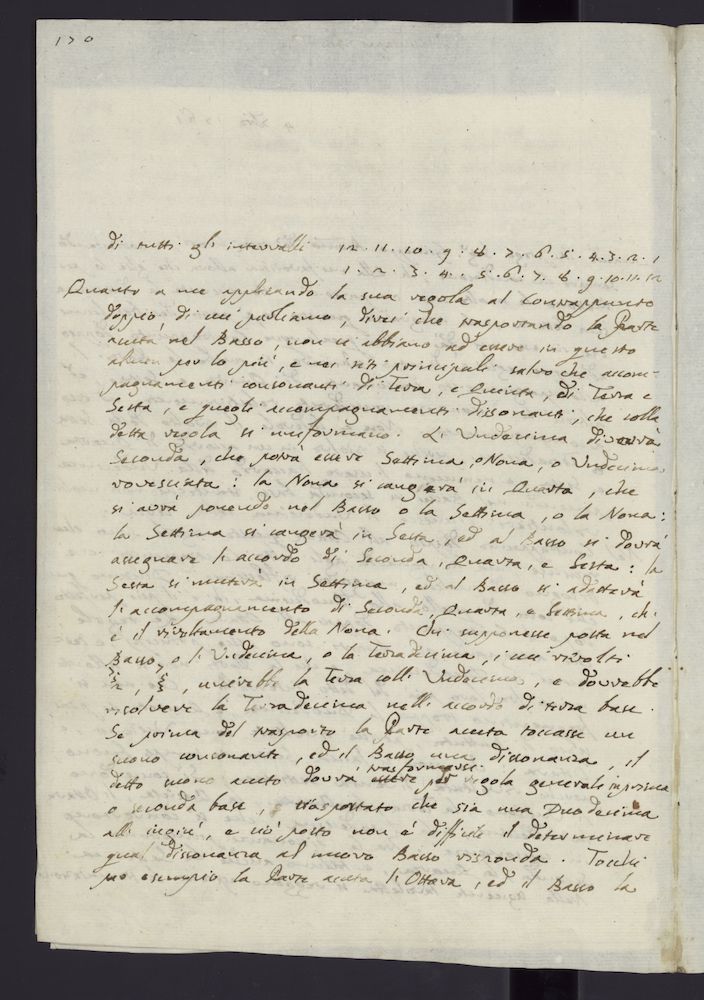 170
di tutti gli intervalli 12. 11. 10. 9. 8. 7. 6. 5. 4. 3. 2. 1
1. 2. 3. 4. 5. 6. 7. 8. 9. 10. 11. 12
Quanto a me applicando la sua regola al Contrappunto
doppio, di cui parliamo, direi che trasportando la Parte
acuta nel Basso, non vi abbiano ad essere in questo
almen per lo più, e nei siti principali salvo che accom-
pagnamenti consonanti di Terza, e Quinta, di Terza e
Sesta, e quegli accompagnamenti dissonanti, che colla
detta regola si uniformano. L' Undecima diverrà
Seconda, che potrà essere Settima, o Nona, o Undecima
rovesciata: la Nona si cangerà in Quarta, che
si avrà ponendo nel Basso o la Settima, o la Nona:
la Settima si cangerà in Sesta, ed al Basso si dovrà
assegnare l' accordo di Seconda, Quarta, e Sesta: la
Sesta si muterà in Settima, ed al Basso si adatterà
l' accompagnamento di Seconda, Quarta, e Settima, ch'
è il rivoltamento della Nona. Chi supponesse posta nel
Basso, o l' Undecima, o la Terzadecima, i cui rivolti
unirebbe la Terza coll' Undecima, e dovrebbe
risolvere la Terzadecima nell' accordo di terza base.
Se prima del trasporto la Parte acuta toccasse un
suono consonante, ed il Basso una dissonanza, il
trasformarsi
detto suono acuto dovrà essere per regola generale in prima
o seconda base, trasportato che sia una Duodecima
all' ingiù, e ciò posto non è difficile il determinare
qual dissonanza al nuovo Basso risponda. Tocchi
per esempio la Parte acuta l' Ottava, ed il Basso la